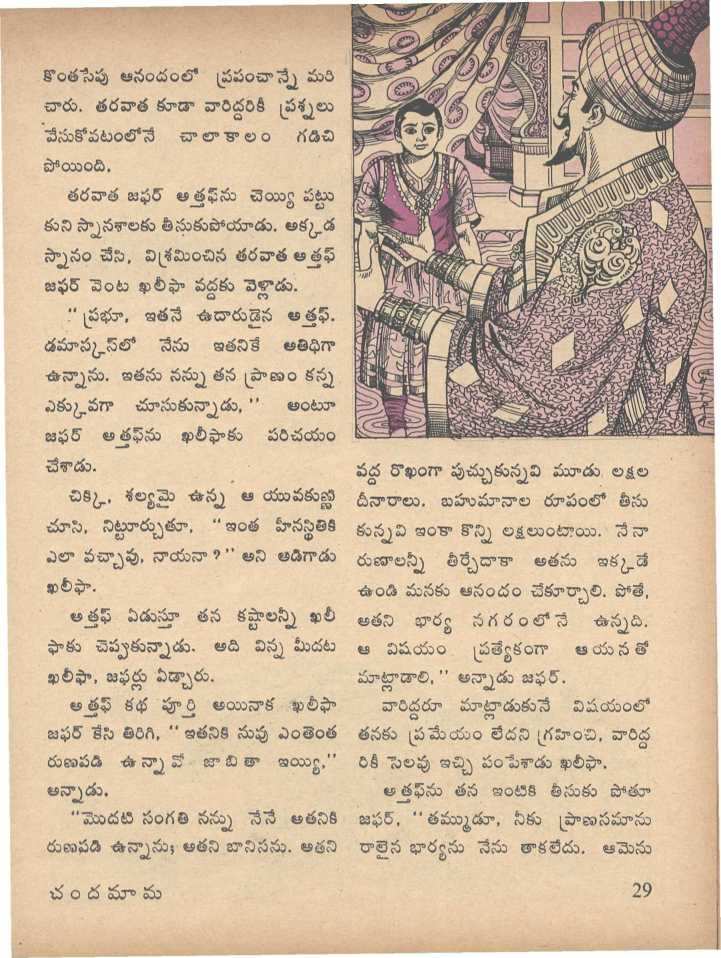 కొంతసేపు ఆనందంలో ప్రపంచాన్నే మరి
చారు. తరవాత కూడా వారిద్దరికీ ప్రశ్నలు
వేసుకోవటంలోనే చాలాకాలం గడిచి
పోయింది.
తరవాత జఫర్ అత్తఫ్‌ను చెయ్యి పట్టు
కుని స్నానశాలకు తీసుకుపోయాడు. అక్కడ
స్నానం చేసి, విశ్రమించిన తరవాత అత్తఫ్
జఫర్ వెంట ఖలీఫా వద్దకు వెళ్లాడు.
"ప్రభూ, ఇతనే ఉదారుడైన అత్తఫ్.
డమాస్కస్‌లో నేను ఇతనికే అతిథిగా
ఉన్నాను. ఇతను నన్ను తన ప్రాణం కన్న
ఎక్కువగా చూసుకున్నాడు," అంటూ
జఫర్ అత్తఫ్‌ను ఖలీఫాకు పరిచయం
చేశాడు.
చిక్కి, శల్యమై ఉన్న ఆ యువకుణ్ణి
చూసి, నిట్టూర్చుతూ, "ఇంత హీనస్థితికి
ఎలా వచ్చావు, నాయనా?" అని అడిగాడు
ఖలీఫా.
అత్తఫ్ ఏడుస్తూ తన కష్టాలన్నీ ఖలీ
ఫాకు చెప్పుకున్నాడు. అది విన్న మీదట
ఖలీఫా, జఫర్లు ఏడ్చారు.
అత్తఫ్ కథ పూర్తి అయినాక ఖలీఫా
జఫర్ కేసి తిరిగి, "ఇతనికి నువు ఎంతెంత
రుణపడి ఉన్నావో జాబితా ఇయ్యి,"
అన్నాడు.
"మొదటి సంగతి నన్ను నేనే అతనికి
రుణపడి ఉన్నాను; అతని బానిసను. అతని
వద్ద రొఖంగా పుచ్చుకున్నవి మూడు లక్షల
దీనారాలు. బహుమానాల రూపంలో తీసు
కున్నవి ఇంకా కొన్ని లక్షలుంటాయి. నేనా
రుణాలన్నీ తీర్చేదాకా అతను ఇక్కడే
ఉండి మనకు ఆనందం చేకూర్చాలి. పోతే,
అతని భార్య నగరంలోనే ఉన్నది.
ఆ విషయం ప్రత్యేకంగా ఆయనతో
మాట్లాడాలి," అన్నాడు జఫర్.
వారిద్దరూ మాట్లాడుకునే విషయంలో
తనకు ప్రమేయం లేదని గ్రహించి, వారిద్ద
రికీ సెలవు ఇచ్చి పంపేశాడు ఖలీఫా.
అత్తఫ్‌ను తన ఇంటికి తీసుకు పోతూ
జఫర్, "తమ్ముడూ, నీకు ప్రాణసమాను
రాలైన భార్యను నేను తాకలేదు. ఆమెను
చందమామ
29